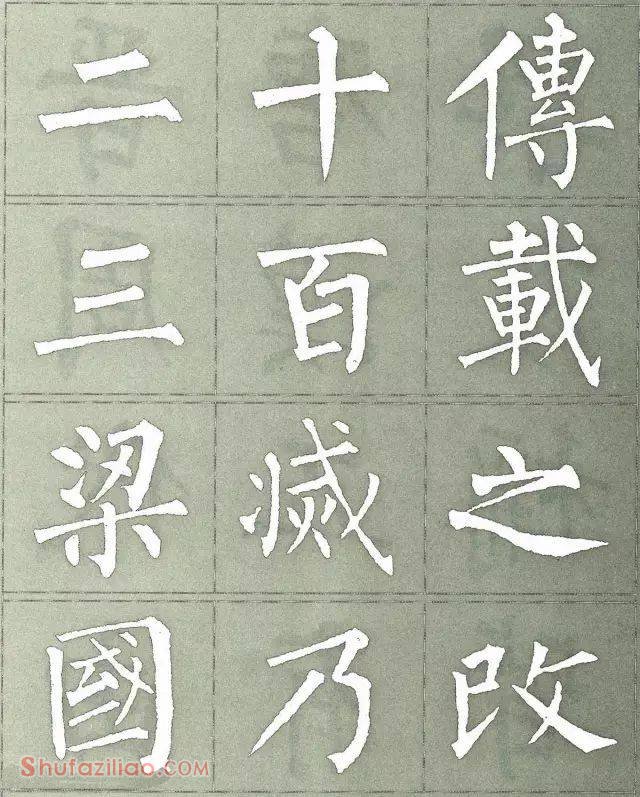 二十傳
三百載
梁滅之
國乃改
Shufaziliao.com